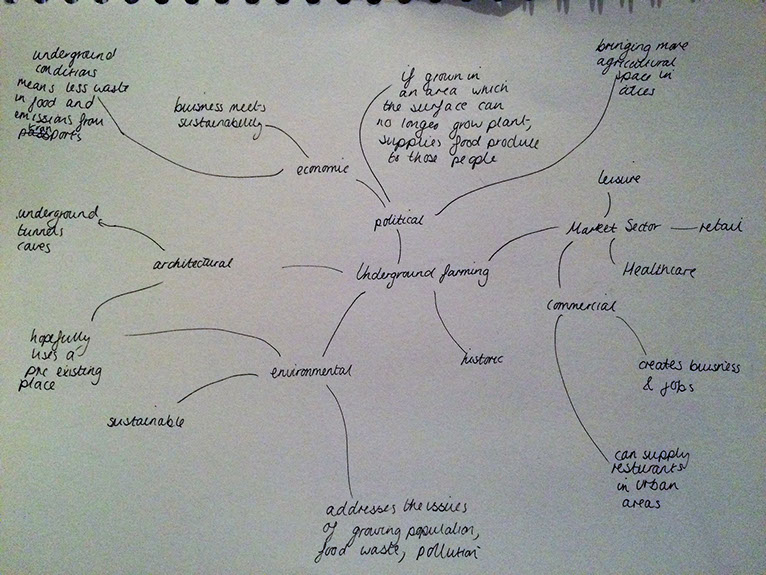 underground
conditions
means less waste
in food and
emissions from
ports
business meets
sustainability
if grown in
an area which
the surface can
no longer grow plant,
supplies food produce
to those people
bringing more
agricultural
space in
cities
economic
political
leisure
Market Sector
retail
Healthcare
commercial
underground
tunnels
caves
architectural
Underground farming
hopefully
uses a
pre existing
place
environmental
historic
creates business
& jobs
sustainable
can supply
resturants
in urban
areas
addresses the issues
of growing population,
food waste, pollution